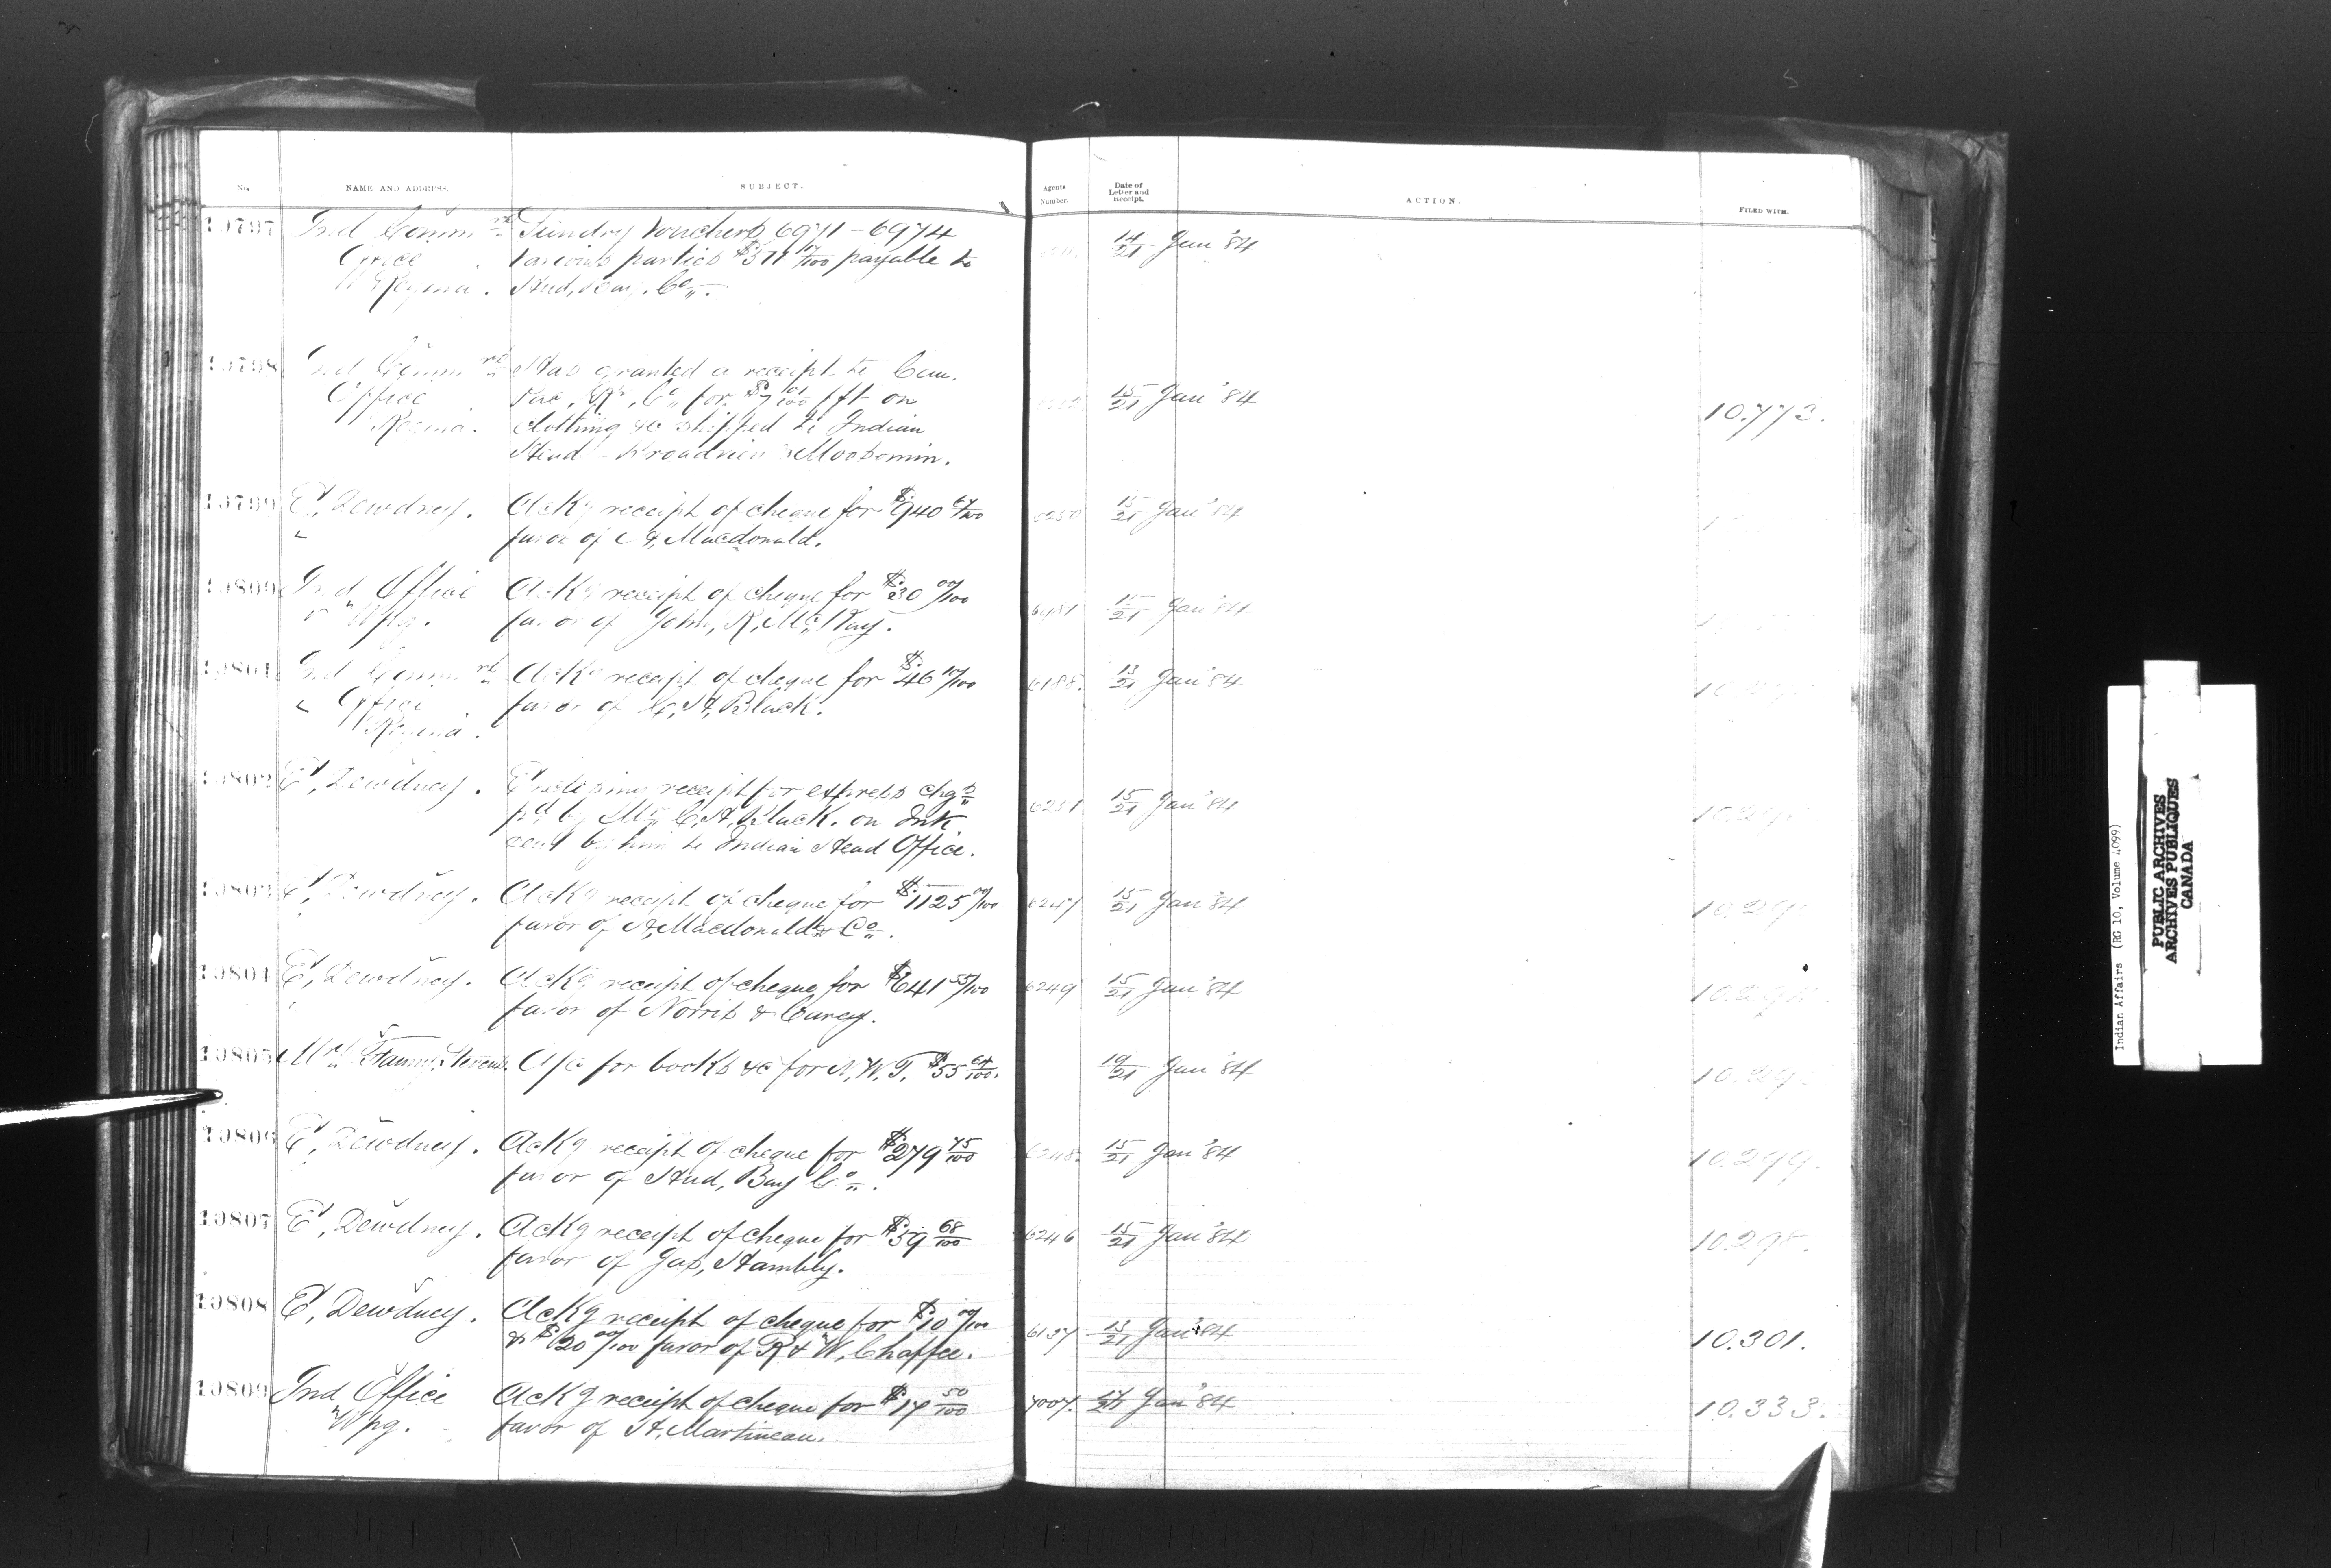 No. NAME AND ADDRESS. SUBJECT. Agents Number. Date of Letter and Receipt. ACTION. FILED WITH.
10797 Ind Commrs Sundry Vouchers 6971 - 6974 14/21 Jan '84
Office various parties $571 payable to
Regina. Hud, Bay. Co.
10798 Ind Commrs Has granted a receipt to Can.
Office Pac, Ry, Co, for $7 fft on 15/21 Jan '84 10.773.
Regina. clothing &c shipped to Indian
Head - Broadview & Moosomin.
10799 E, Dewdney. Ackg receipt of cheque for $940 67/100 6250 15/21 Jan '84
favor of A, Macdonald.
10800 Ind Office Ackg receipt of cheque for $30 00/100 15/21 Jan '84
" Wpg. favor of John, R, McKay.
10801 Ind Commrs Ackg receipt of cheque for $46 10/100 6188. 13/21 Jan '84
Office favor of C, H, Black.
Regina.
10802 E, Dewdney. Enclosing receipt for express chgs
pd by Mr C, H, Black. on Ink 6251 15/21 Jan '84
sent by him to Indian Head Office.
10803 E, Dewdney. Ackg receipt of cheque for $1125 00/100 6247 15/21 Jan '84
favor of A, Macdonald & Co.
10804 E, Dewdney. Ackg receipt of cheque for $641 55/100 6249 15/21 Jan '84
favor of Norris & Carey.
10805 Mrs Fanny, Stevens. A/c for books &c for N, W, T, $55 64/100. 19/21 Jan '84
10806 E, Dewdney. Ackg receipt of cheque for $279 75/100 6248. 15/21 Jan '84 10.299.
favor of Hud, Bay Co.
10807 E, Dewdney. Ackg receipt of cheque for $59 68/100 6246 15/21 Jan '84 10.298.
favor of Jas, Hambly.
10808 E, Dewdney. Ackg receipt of cheque for $10 00/100 6137 13/21 Jan '84 10.301.
& $20 00/100 favor of R & W, Chaffee.
10809 Ind Office Ackg receipt of cheque for $17 50/100 7007. 17/21 Jan '84 10.333.
" Wpg. favor of H, Martineau.
Indian Affairs (RG 10, Volume 4099)
PUBLIC ARCHIVES
ARCHIVES PUBLIQUES
CANADA